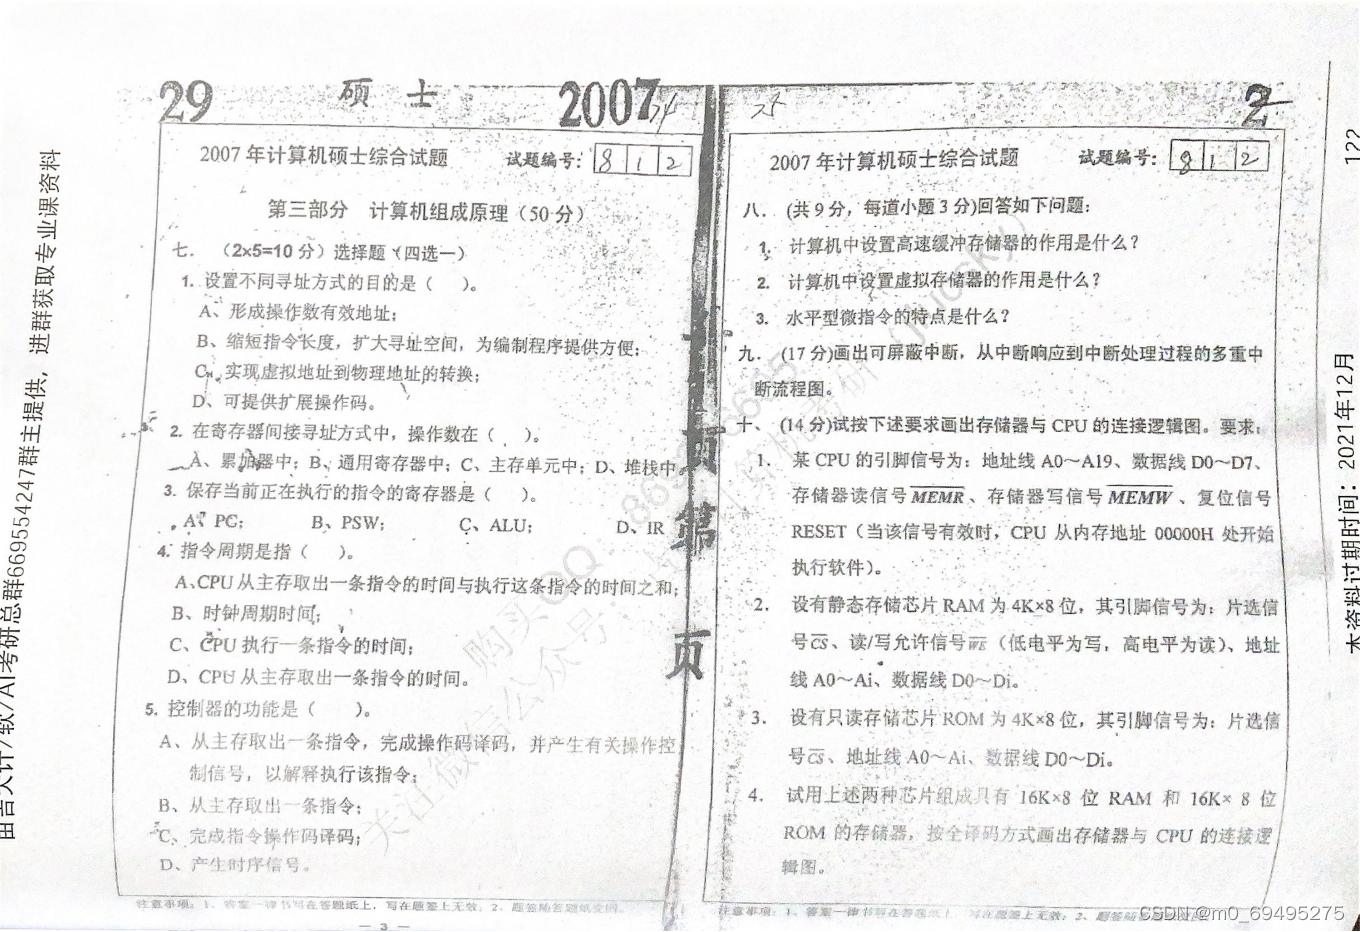 29 硕士 2007
2007 年计算机硕士综合试题 试题编号: 8 1 2
第三部分 计算机组成原理（50 分）
七. （2x5=10 分）选择题（四选一）
1. 设置不同寻址方式的目的是（ ）。
A、形成操作数有效地址;
B、缩短指令长度，扩大寻址空间，为编制程序提供方便;
C、实现虚拟地址到物理地址的转换;
D、可提供扩展操作码。
2. 在寄存器间接寻址方式中，操作数在（ ）。
A、累加器中; B、通用寄存器中; C、主存单元中; D、堆栈中。
3. 保存当前正在执行的指令的寄存器是（ ）。
A、PC; B、PSW; C、ALU; D、IR
4. 指令周期是指（ ）。
A、CPU 从主存取出一条指令的时间与执行这条指令的时间之和;
B、时钟周期时间;
C、CPU 执行一条指令的时间;
D、CPU 从主存取出一条指令的时间。
5. 控制器的功能是（ ）。
A、从主存取出一条指令，完成操作码译码，并产生有关操作控
制信号，以解释执行该指令;
B、从主存取出一条指令;
C、完成指令操作码译码;
D、产生时序信号。
注意事项: 1、答案一律书写在答题纸上，写在题签上无效; 2、题签随答题纸交回。
— 3 —
页
第
页
2
2007 年计算机硕士综合试题 试题编号: 8 1 2
八. (共 9 分，每道小题 3 分)回答如下问题:
1. 计算机中设置高速缓冲存储器的作用是什么?
2. 计算机中设置虚拟存储器的作用是什么?
3. 水平型微指令的特点是什么?
九. (17 分)画出可屏蔽中断，从中断响应到中断处理过程的多重中
断流程图。
十、(14 分)试按下述要求画出存储器与 CPU 的连接逻辑图。要求:
1. 某 CPU 的引脚信号为: 地址线 A0～A19、数据线 D0～D7、
存储器读信号 MEMR、存储器写信号 MEMW、复位信号
RESET（当该信号有效时，CPU 从内存地址 00000H 处开始
执行软件）。
2. 设有静态存储芯片 RAM 为 4K×8 位，其引脚信号为: 片选信
号 CS、读/写允许信号 WE（低电平为写，高电平为读）、地址
线 A0～Ai、数据线 D0～Di。
3. 设有只读存储芯片 ROM 为 4K×8 位，其引脚信号为: 片选信
号 CS、地址线 A0～Ai、数据线 D0～Di。
4. 试用上述两种芯片组成具有 16K×8 位 RAM 和 16K× 8 位
ROM 的存储器，按全译码方式画出存储器与 CPU 的连接逻
辑图。
注意事项: 1、答案一律书写在答题纸上，写在题签上无效; 2、题签
研总群669554247群主提供，进群获取专业课资料
本资料过期时间: 2021年12月 122
购买QQ:
关注微信公众号:
CSDN@m0_69495275